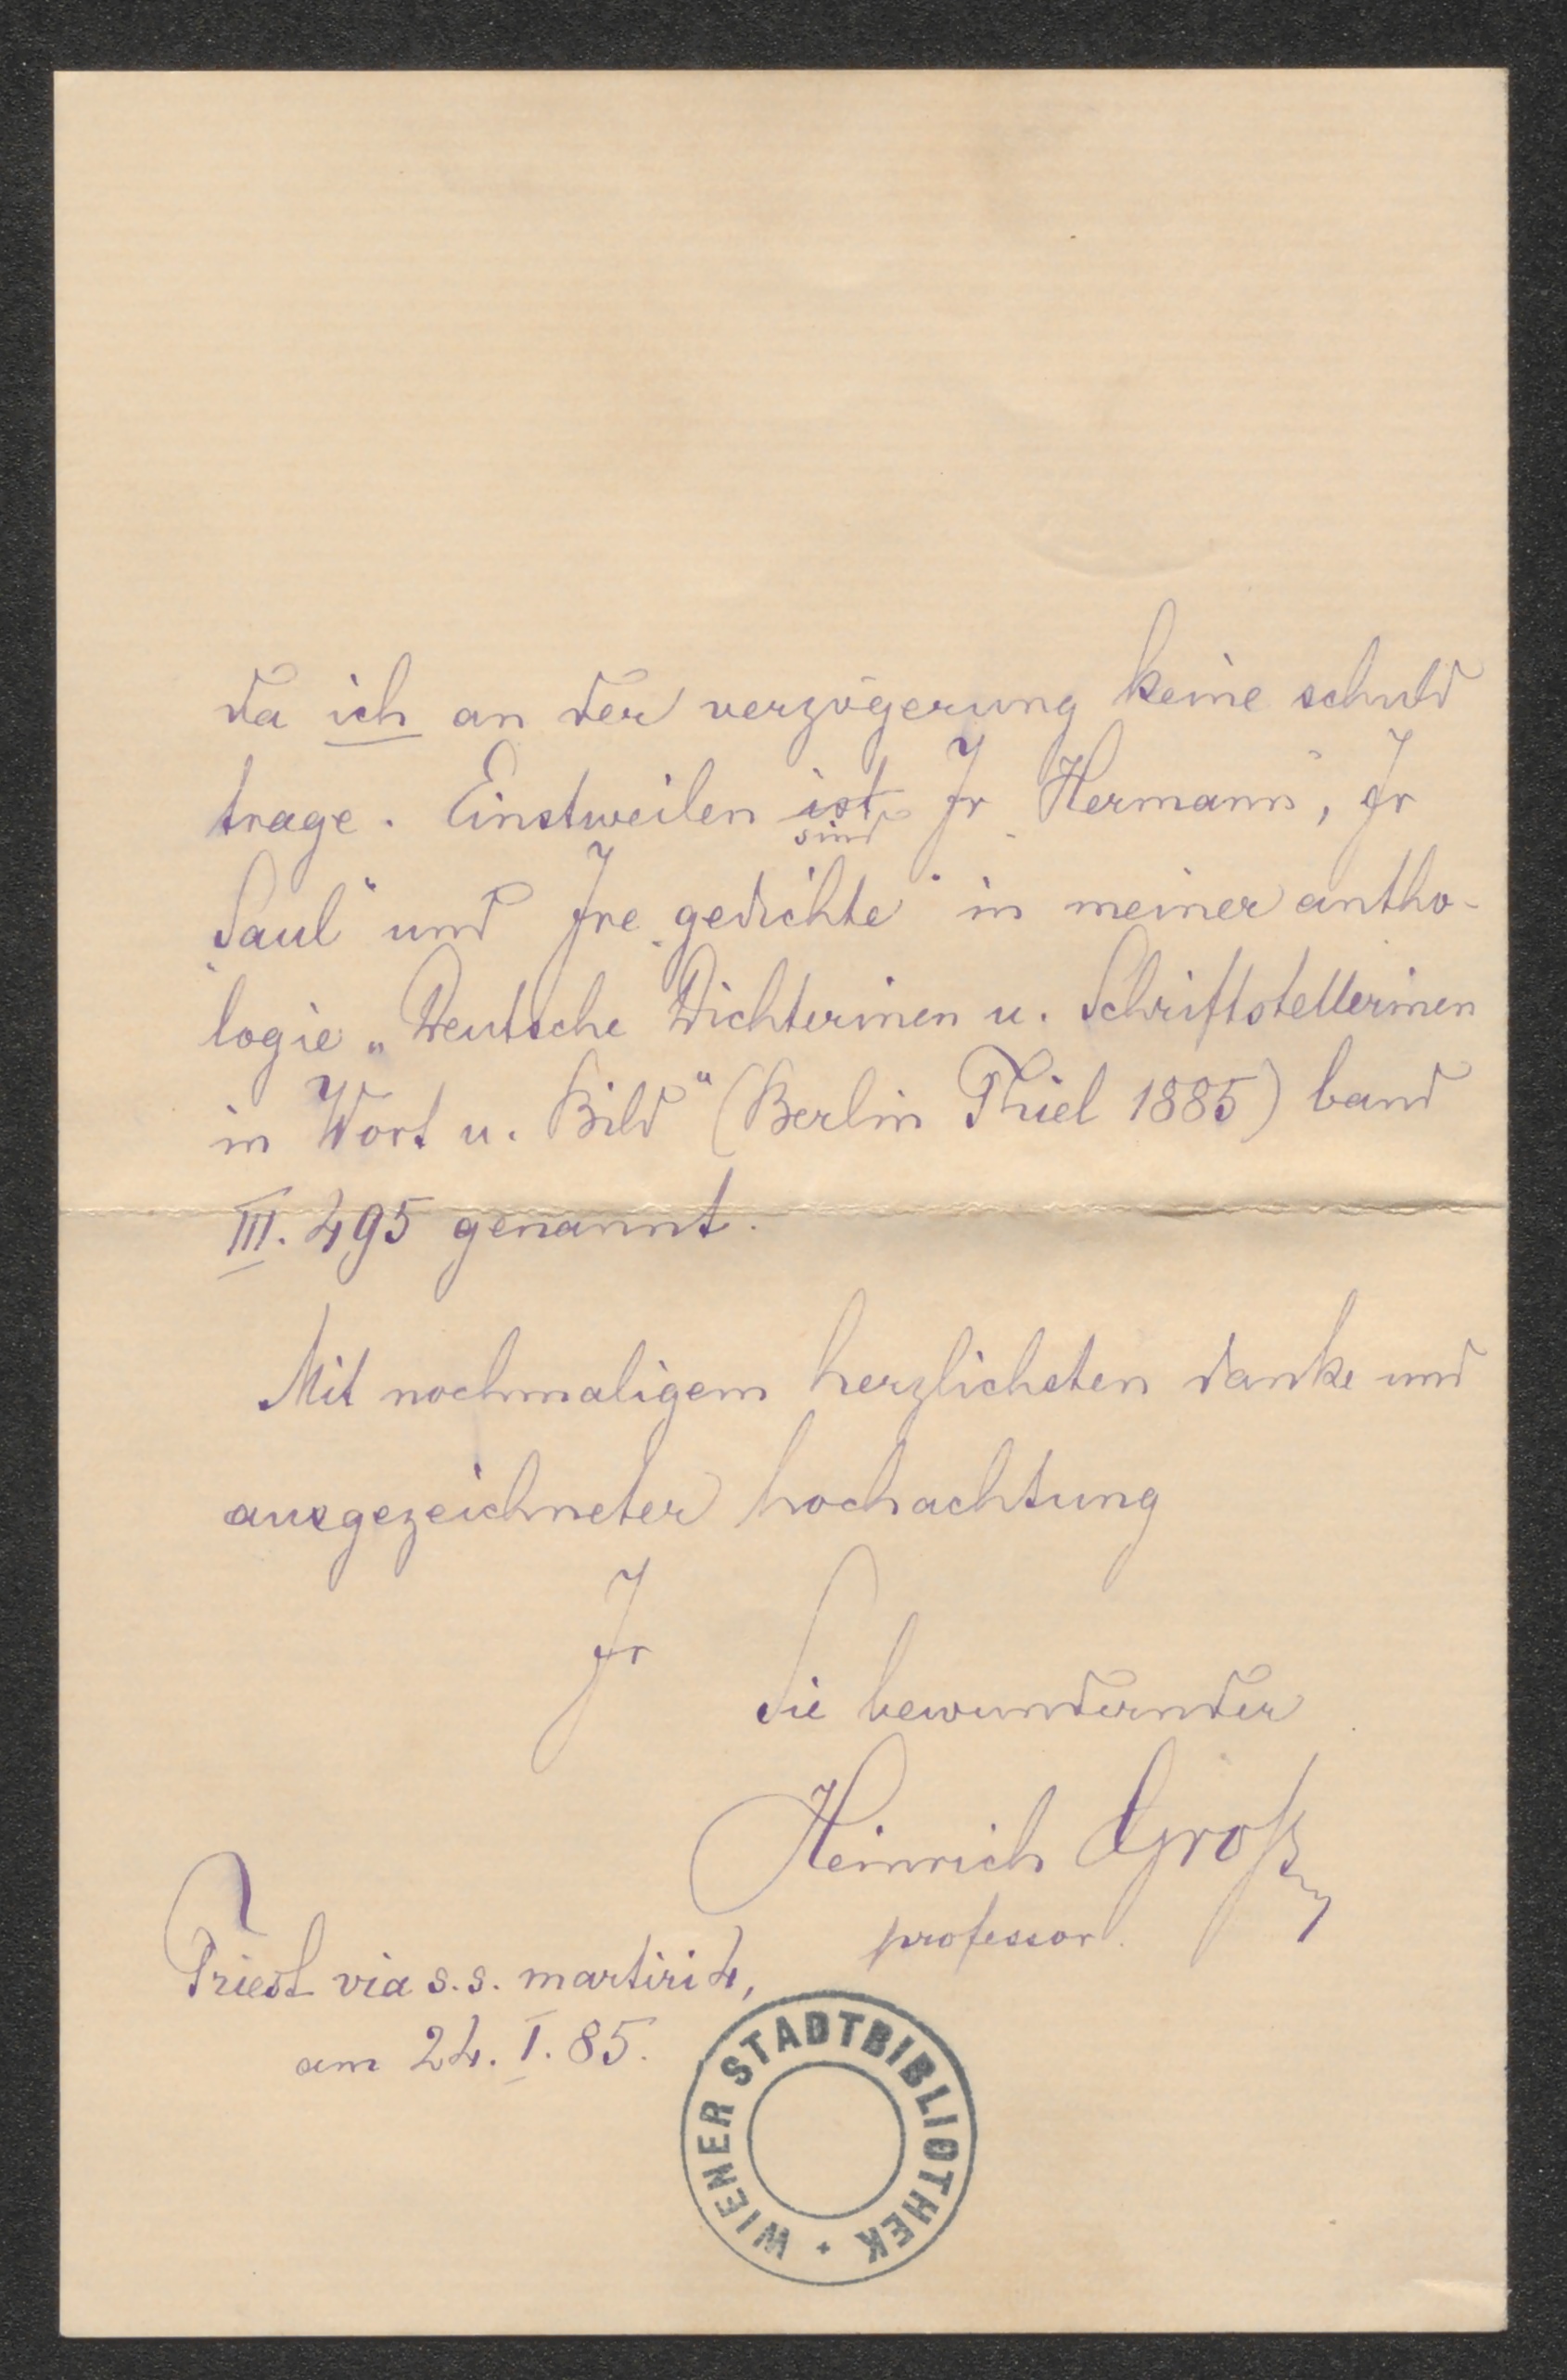 da ich an der verzögerung keine schuld
trage. Einstweilen ist sind Jr „Hermann", Jr
„Saul" und Jre „gedichte" in meiner antho-
logie „Deutsche Dichterinen u. Schriftstellerinen
in Wort u. Bild" (Berlin Thiel 1885) band
III. 495 genannt.
Mit nochmaligem herzlichsten danke und
ausgezeichneter hochachtung
Jr
Sie bewundernder
Heinrich Groß
professor.
Triest via s.s. martiri 4,
am 24. I. 85.
WIENER STADTBIBLIOTHEK